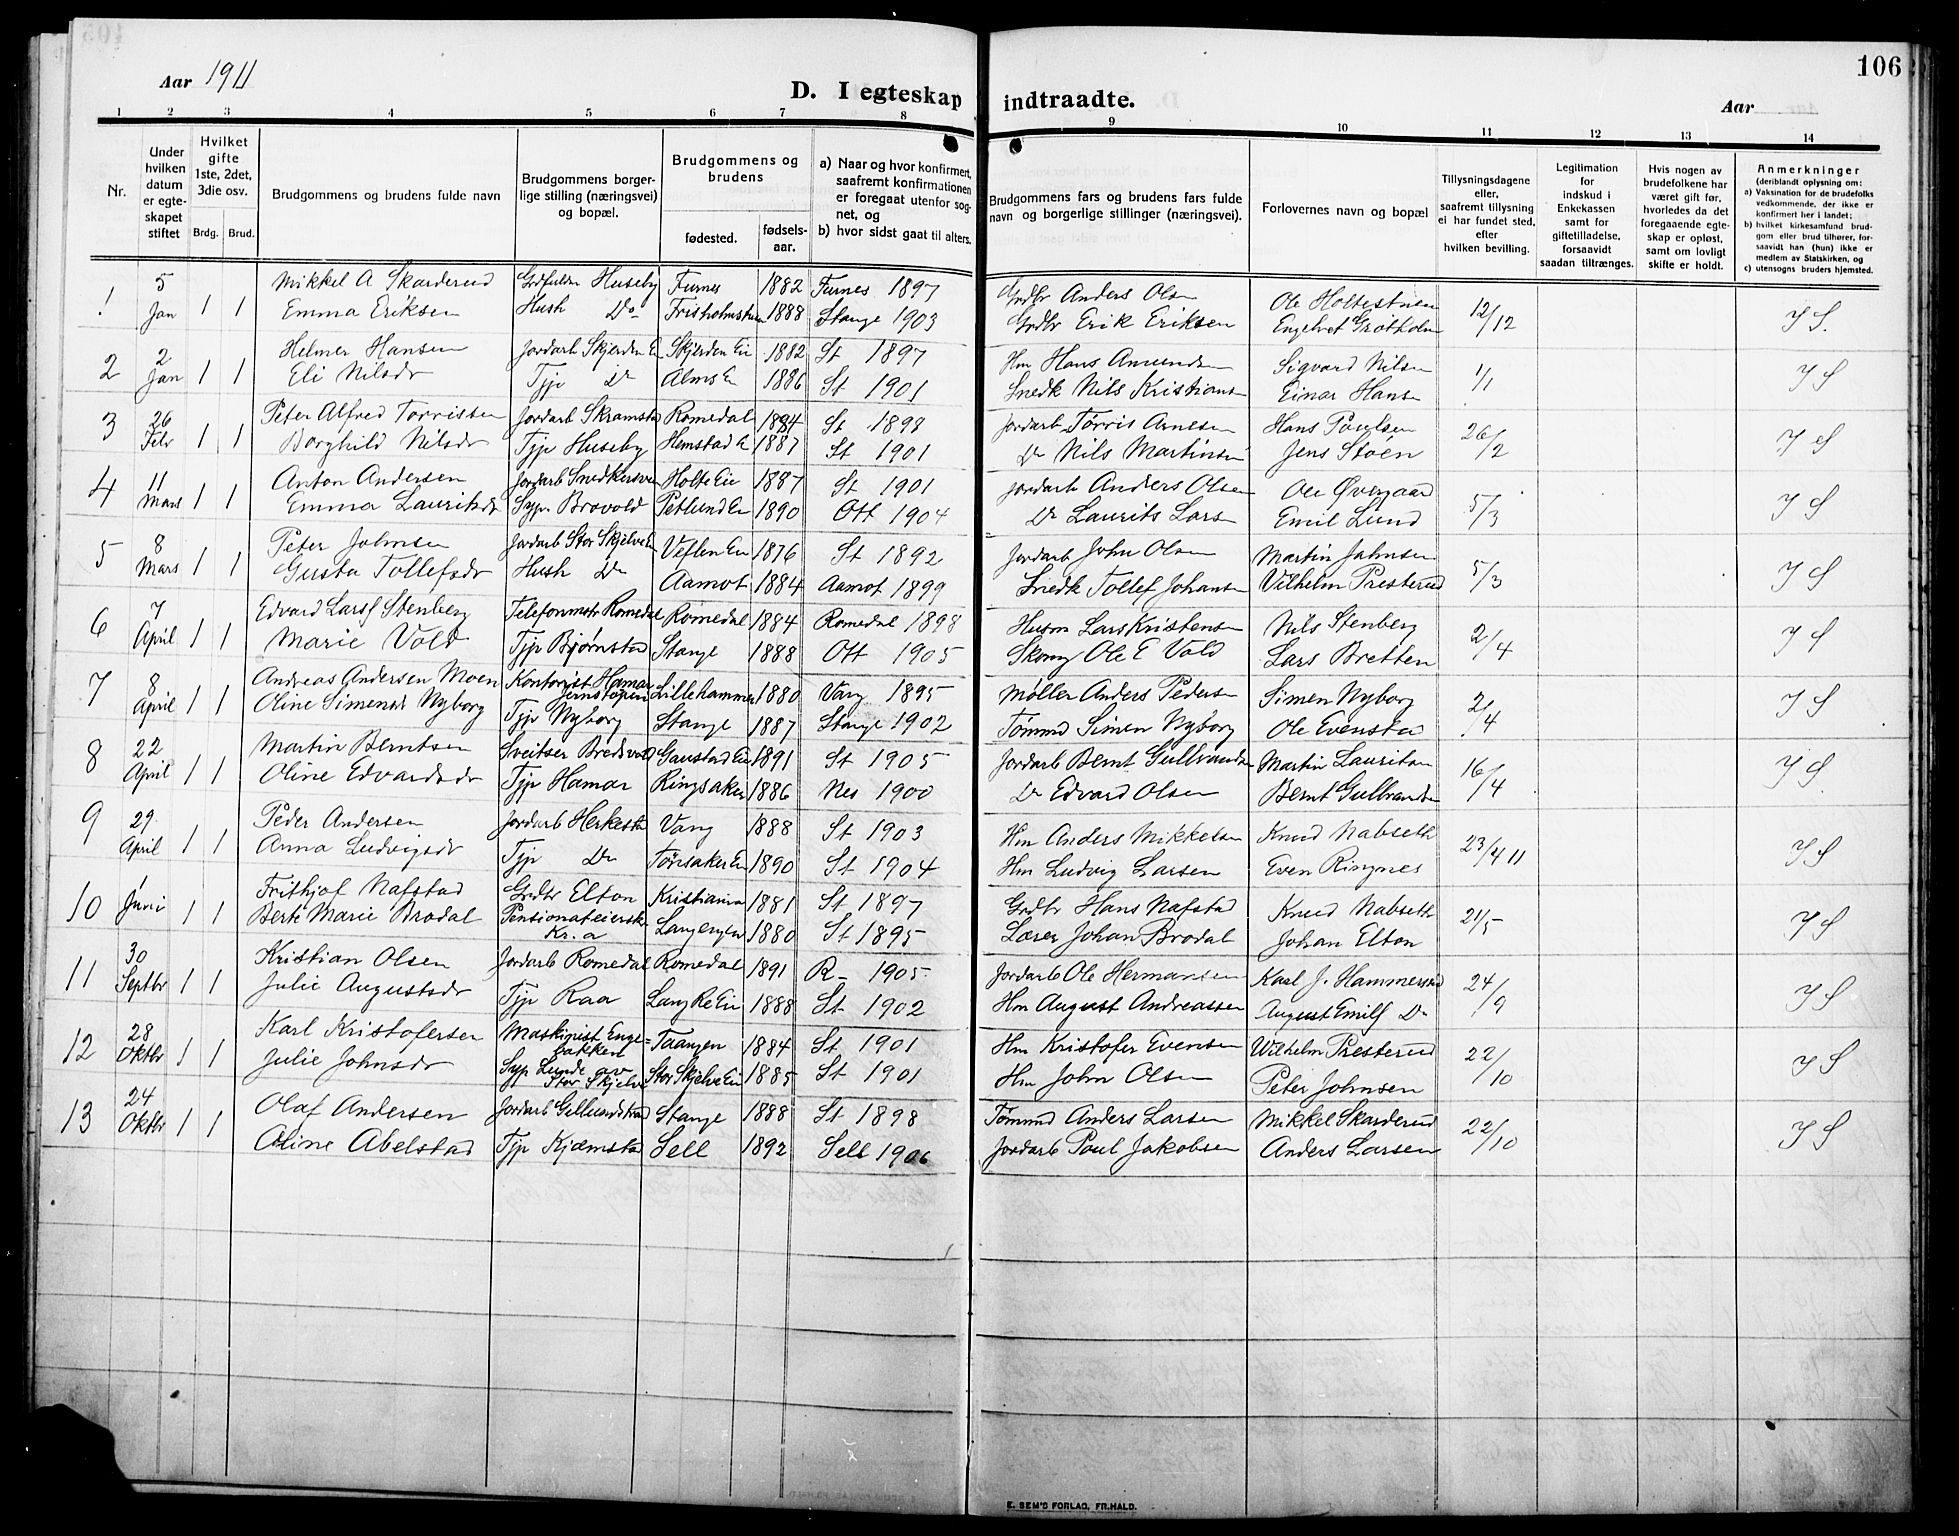 106
Aar 1911
D. I egteskap indtraadte.
Aar
1 2 3 4 5 6 7 8 9 10 11 12 13 14
Nr.
Under hvilken datum er egte-skapet stiftet
Hvilket gifte 1ste, 2det, 3die osv.
Brdg. Brud.
Brudgommens og brudens fulde navn
Brudgommens borger-lige stilling (næringsvei) og bopæl.
Brudgommens og brudens
fødested.
fødsels-aar.
a) Naar og hvor konfirmert, saafremt konfirmationen er foregaat utenfor sog-net, og
b) hvor sidst gaat til alters.
Brudgommens fars og brudens fars fulde navn og borgerlige stillinger (næringsvei).
Forlovernes navn og bopæl
Tillysningsdagene eller, saafremt tillysning ei har fundet sted, efter hvilken bevilling.
Legitimation for indskud i Enkekassen samt for giftetilladelse, forsaavidt saadan tiltrænges.
Hvis nogen av brudefolkene har været gift før, hvorledes da det foregaaende egte-skap er opløst, samt om lovligt skifte er holdt.
Anmerkninger
(deriblandt oplysning om:
a) Vaksination for de brudefolks vedkommende, der ikke er konfirmert her i landet;
b) hvilket kirkesamfund brud-gom eller brud tilhører, for-saavidt han (hun) ikke er medlem av Statskirken, og
c) utensogns bruders hjemsted.
1 5 Jan 1 1 Mikkel A Skarderud Huseby Furnes 1882 Furnes 1897 Grdbr Anders Olsen Ole 12/12 J S.
Emma Eriksen Hush Do 1888 Stange 1903 Grdbr Erik Eriksen Engelvet Grøtholm
2 2 Jan 1 1 Helmer Hansen Jordarb Skjerden Ei Skjerden Ei 1882 St 1897 Hm Hans Amundsen Sigvard Nilsen 1/1 J S
Eli Nilsdr Tjp Do Alms Ei 1886 St 1901 Snedk Nils Kristians Einar Hansen
3 26 Febr 1 1 Peter Alfred Torrissen Jordarb Skramstad Romedal 1884 St 1898 Jordarb Torris Arnesen Hans Poulsen 26/2 J S
Borghild Nilsdr Tjp Huseby Hemstad Ei 1887 St 1901 Do Nils Martinsen Jens Støen
4 11 Mars 1 1 Anton Andersen Jordarb Holte Eie 1887 St 1901 Jordarb Anders Olsen Ole Øvergaard 5/3 J S
Emma Lauritsdr Syp. Brovold Petlund Ei 1890 Ott 1904 Do Laurits Lars Emil Lund
5 8 Mars 1 1 Peter Johnsen Jordarb Stor Skjelve Ei Veflen Ei 1876 St 1892 Jordarb John Olsen Martin Johnsen 5/3 J S
Gusta Tollefsdr Hush Do Aamot 1884 Aamot 1899 Snedk Tollef Johansen Vilhelm Presterud
6 7 April 1 1 Edvard Larss Stenberg Telefonmstr Romedal Romedal 1884 Romedal 1898 Husm Lars Kristensen Nils Stenberg 2/4 J S
Marie Vold Tjp Bjørnstad Stange 1888 Ott 1905 Skomg Ole E Vold Lars Bretten
7 8 April 1 1 Andreas Andersen Moen Kontorist Hamar Jernstøperi Lillehammer 1880 Vang 1895 Møller Anders Pedersen Simen Nyborg 2/4 J S
Oline Simensdr Nyborg Tjp Nyborg Stange 1887 Stange 1902 Tømmd Simen Nyborg Ole Evenstad
8 22 April 1 1 Martin Berntsen Sveitser Bredsvold Gaustad Ei 1891 St 1905 Jordarb Bernt Gulbrandsen Martin Lauritsen 16/4 J S
Oline Edvardsdr Tjp Hamar Ringsaker 1886 Nes 1900 Do Edvard Olsen Bernt Gulbrandsen
9 29 April 1 1 Peder Andersen Jordarb Herkestad Vang 1888 St 1903 Hm Anders Mikkelsen Knud Nabseth 23/4 11 J S
Anna Ludvigsdr Tjp Do Tønsaker Ei 1890 St 1904 Hm Ludvig Larsen Even Ringnes
10 1 Juni 1 1 Frithjof Nafstad Grdbr Elton Kristiania 1881 St 1897 Grdbr Hans Nafstad Knud Nabseth 21/5 J S
Berte Marie Brodal Pensionateierske Kr.a 1880 St 1895 Lærer Johan Brodal Johan Elton
11 30 Septbr 1 1 Kristian Olsen Jordarb Romedal Romedal 1891 R- 1905 Jordarb Ole Hermansen Karl J. Hammerstad 24/9 J S
Julie Augustsdr Tjp Raa Lang Re Ei 1888 St 1902 Hm August Andreassen August Emils Do
12 28 Oktbr 1 1 Karl Kristofersen Maskinist Engebakken Taangen 1884 St 1901 Hm Kristofer Evensen Wilhelm Presterud 22/10 J S
Julie Johnsdr Syp Lunde av Stor Skjelve Stor Skjelve Ei 1885 St 1901 Hm John Olsen Peter Johnsen
13 24 Oktbr 1 1 Olaf Andersen Jordarb Gillundstrand Stange 1888 St 1898 Tømmd Anders Larsen Mikkel Skarderud 22/10 J S
Oline Abelstad Tjp Kjæmstad Sell 1892 Sell 1906 Jordarb Paul Jakobsen Anders Larsen
E. SEM'S FORLAG, FR.HALD.